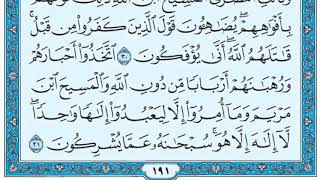 وَقَالَتِ النَّصَٰرَى الْمَسِيحُ ابْنُ اللَّهِ ذَٰلِكَ قَوْلُهُم
بِأَفْوَٰهِهِمْ يُضَٰهِـُٔونَ قَوْلَ الَّذِينَ كَفَرُوا۟ مِن قَبْلُ
قَٰتَلَهُمُ اللَّهُ أَنَّىٰ يُؤْفَكُونَ ٣٠ اتَّخَذُوٓا۟ أَحْبَارَهُمْ
وَرُهْبَٰنَهُمْ أَرْبَابًا مِّن دُونِ اللَّهِ وَالْمَسِيحَ ابْنَ
مَرْيَمَ وَمَآ أُمِرُوٓا۟ إِلَّا لِيَعْبُدُوٓا۟ إِلَٰهًا وَٰحِدًا
لَّآ إِلَٰهَ إِلَّا هُوَ سُبْحَٰنَهُۥ عَمَّا يُشْرِكُونَ ٣١
١٩١